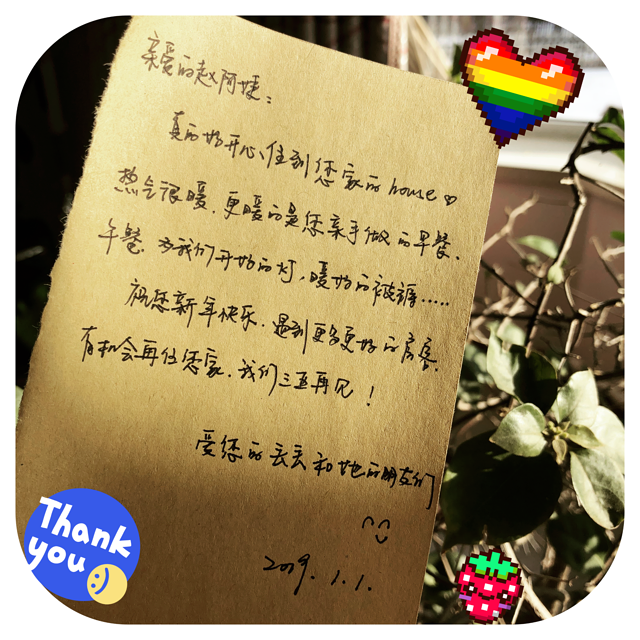 亲爱的赵阿姨：
真的好开心住到您家的house♡
热气很暖，更暖的是您亲手做的早餐、
午餐，为我们开好的灯，暖好的被褥.....
祝您新年快乐，遇到更多更好的房客，
有机会再住您家，我们三亚再见！
爱您的丢丢和她的朋友们
2019.1.1.
Thank
you